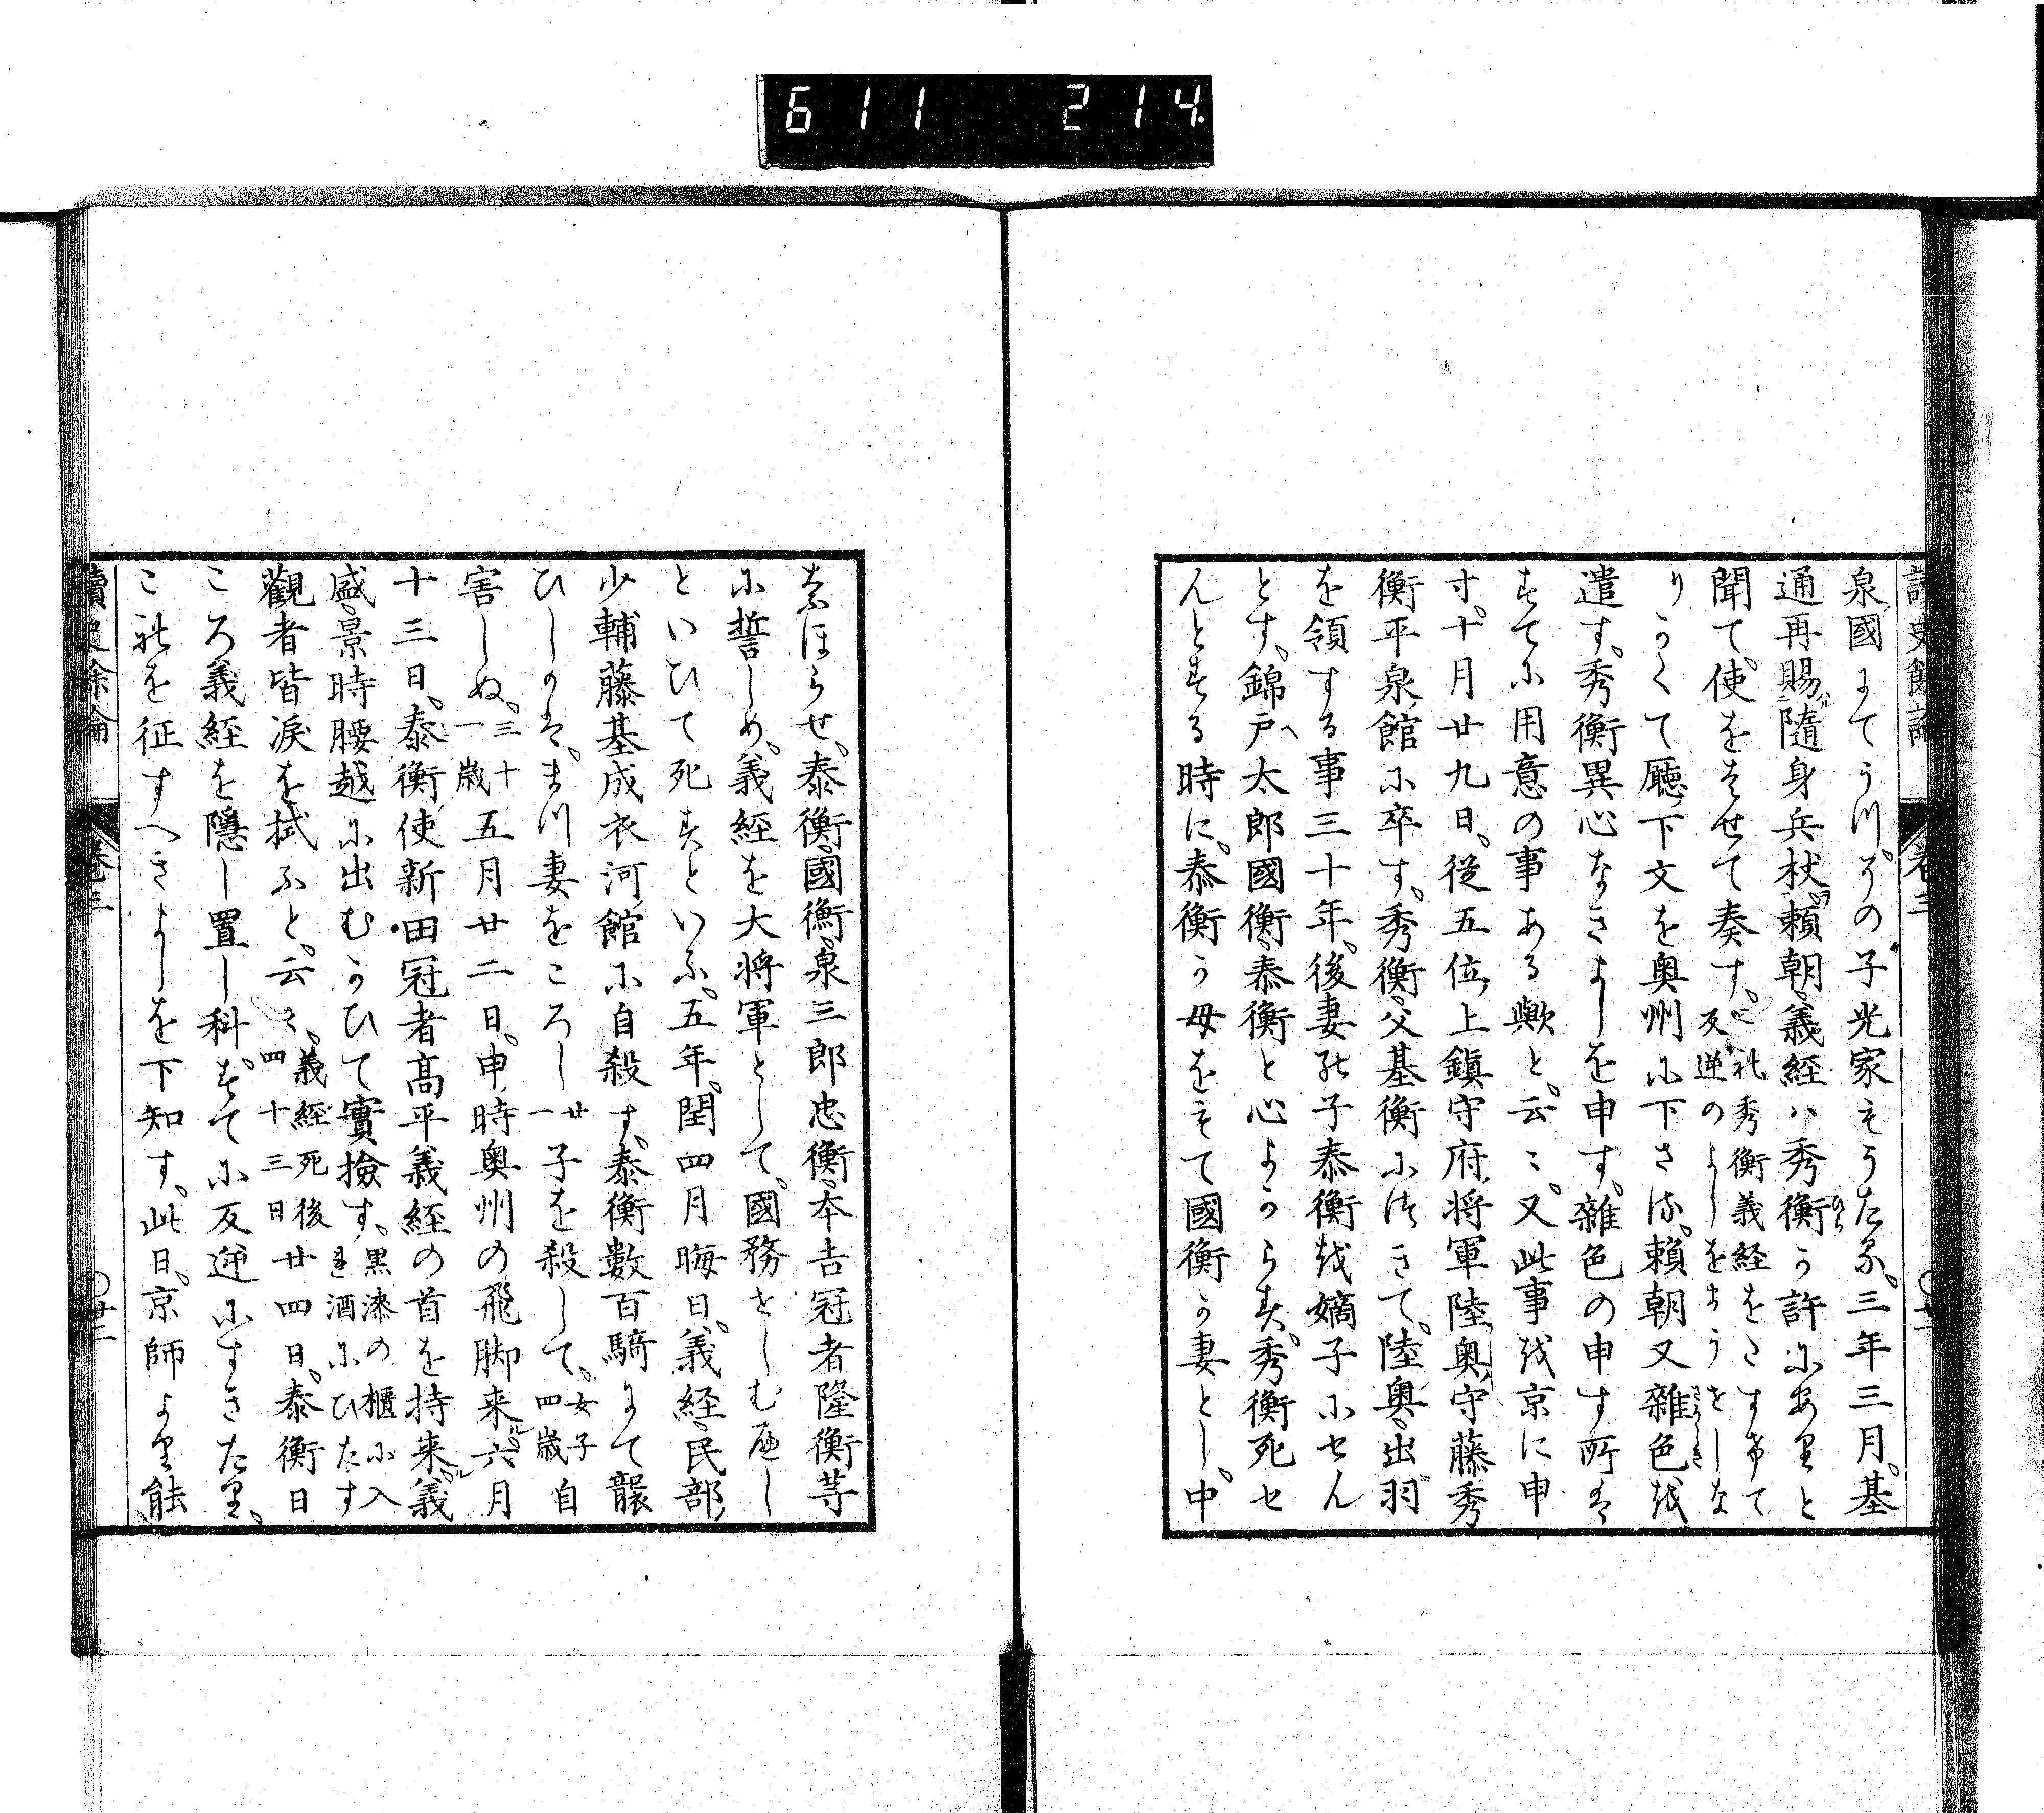 6 1 1 2 1 4.
讀史餘論 巻三 〇廿一
泉國にてうつ。その子光家もうたる。三年三月。基
通再賜隨身兵杖。頼朝義経ハ秀衡か許にありと
聞て。使をはせて奏す。これ秀衡義経をたすけて
反逆のよしをまうをしな
りかくて廳下文を奥州に下さる。頼朝又雑色を
遣す。秀衡異心なきよしを申す。雑色の申す所は
すてに用意の事ある歟と。云々。又此事を京に申
す。十月廿九日。従五位上鎮守府将軍陸奥守藤秀
衡平泉館に卒す。秀衡父基衡につきて。陸奥出羽
を領する事三十年。後妻の子泰衡を嫡子にせん
とす。錦戸太郎國衡泰衡と心よからす。秀衡死せ
んとする時に。泰衡か母をもて國衡か妻とし。中
なほらせ。泰衡國衡泉三郎忠衡本吉冠者隆衡等
に誓しめ。義経を大将軍として。國務せしむへし
といひて死すといふ。五年。閏四月晦日。義経民部
少輔藤基成衣河館に自殺す。泰衡数百騎にて襲
ひしかは。まつ妻をころし廿一子を殺して。女子四歳自
害しぬ。三十一歳五月廿二日。申時奥州の飛脚来六月
十三日。泰衡使新田冠者高平義経の首を持来。義
盛景時腰越に出むかひて實撿す。黒漆の櫃に入
れ酒にひたす
觀者皆涙を拭ふと。云々。義経死後
四十三日廿四日。泰衡日
ころ義経を隠し置し科。すてに反逆にすきたり。
これを征すへきよしを下知す。此日。京師より能
讀史餘論 巻三 〇廿二